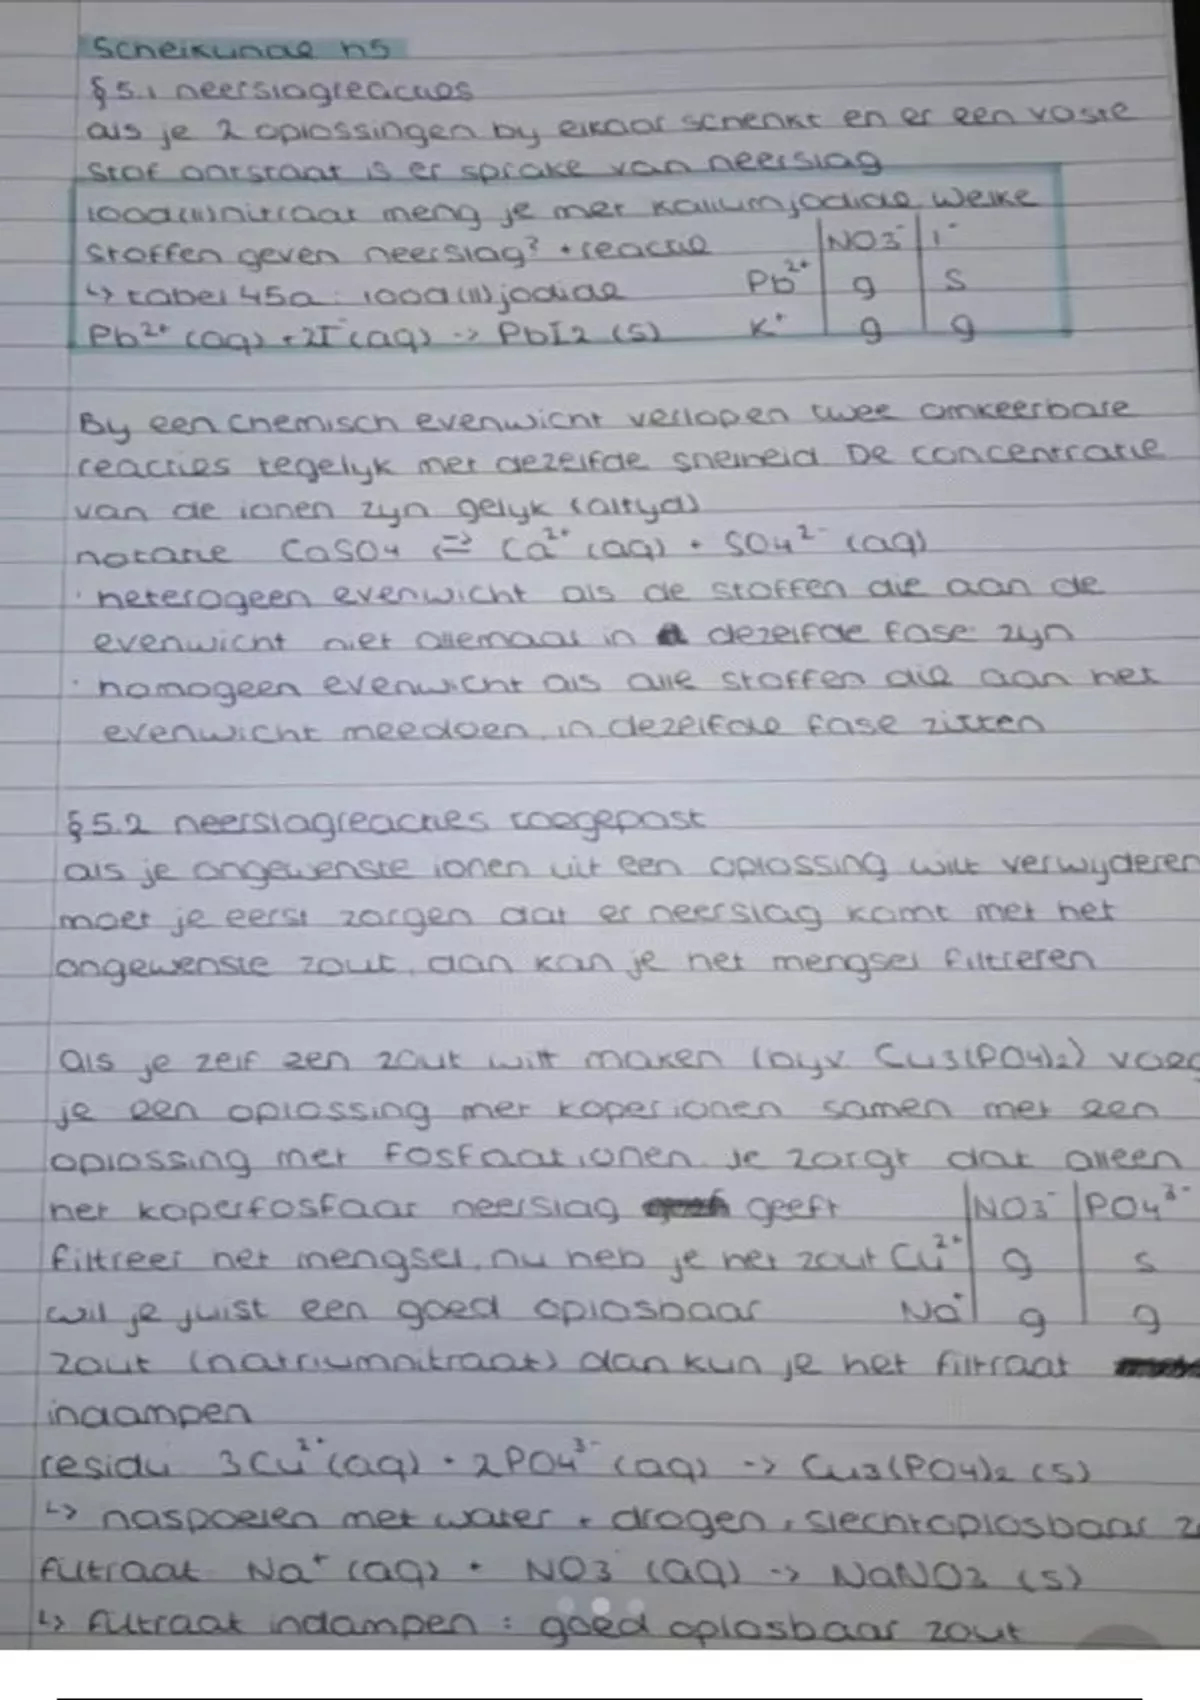 Scheikunde h5
§5.1 neerslagreacties
als je 2 oplossingen by elkaar schenkt en er een vaste
stof ontstaat is er sprake van neerslag
lood(II)nitraat meng je met kaliumjodide. Welke
stoffen geven neerslag? + reactie
↳ tabel 45a: lood(II)jodide
Pb²⁺ (aq) + 2I⁻ (aq) -> PbI2 (s)
NO3⁻ I⁻
Pb²⁺ g s
K⁺ g g
By een chemisch evenwicht verlopen twee omkeerbare
reacties tegelyk met dezelfde snelheid. De concentratie
van de ionen zyn gelyk (altyd)
notatie CaSO4 ⇌ Ca²⁺ (aq) + SO4²⁻ (aq)
· heterogeen evenwicht als de stoffen die aan de
evenwicht niet allemaal in dezelfde fase zyn
· homogeen evenwicht als alle stoffen die aan het
evenwicht meedoen in dezelfde fase zitten
§5.2 neerslagreacties toegepast
als je ongewenste ionen uit een oplossing wilt verwyderen
moet je eerst zorgen dat er neerslag komt met het
ongewenste zout, dan kan je het mengsel filtreren
Als je zelf een zout wilt maken (byv. Cu3(PO4)2) voeg
je een oplossing met koperionen samen met een
oplossing met fosfaationen. Je zorgt dat alleen
het koperfosfaat neerslag geeft
filtreer het mengsel, nu heb je het zout
wil je juist een goed oplosbaar
NO3⁻ PO4³⁻
Cu²⁺ g s
Na⁺ g g
zout (natriumnitraat) dan kun je het filtraat
indampen
residu 3Cu²⁺ (aq) + 2PO4³⁻ (aq) -> Cu3(PO4)2 (s)
↳ naspoelen met water + drogen, slechtoplosbaar
filtraat Na⁺ (aq) + NO3⁻ (aq) -> NaNO3 (s)
↳ filtraat indampen: goed oplosbaar zout